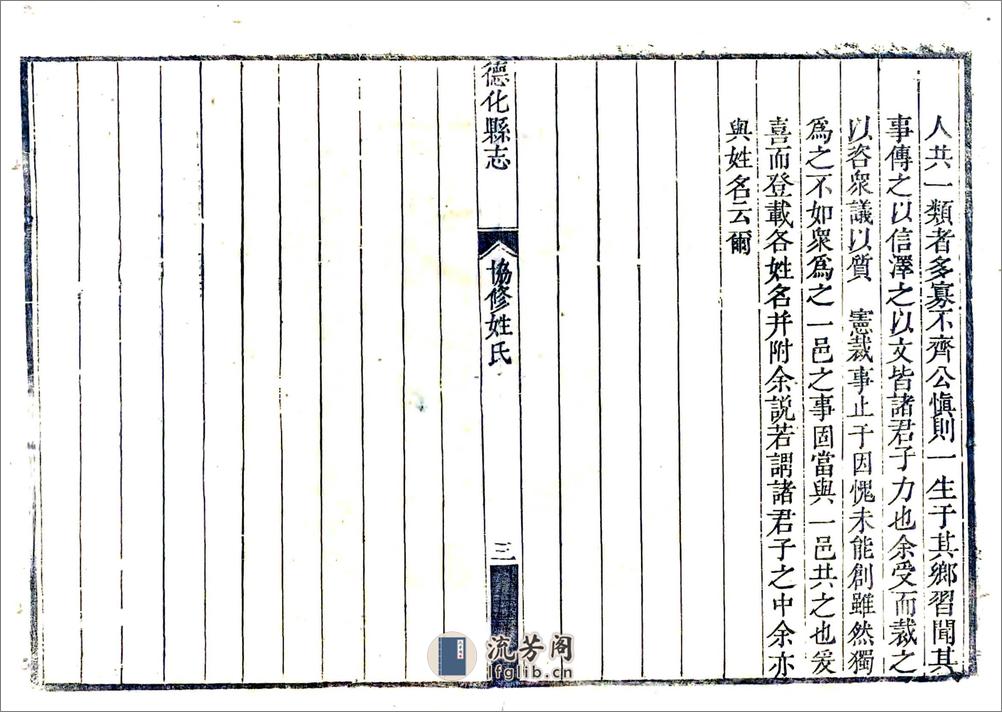 人共一類者多寡不齊公慎則一生于其鄉習聞其
事傳之以信澤之以文皆諸君子力也余受而裁之
以咨衆議以質　憲裁事止于因愧未能創雖然獨
爲之不如衆爲之一邑之事固當與一邑共之也爰
喜而登載各姓名幷附余説若謂諸君子之中余亦
與姓名云爾
德化縣志
協修姓氏
三
流芳阁
lfglib.cn